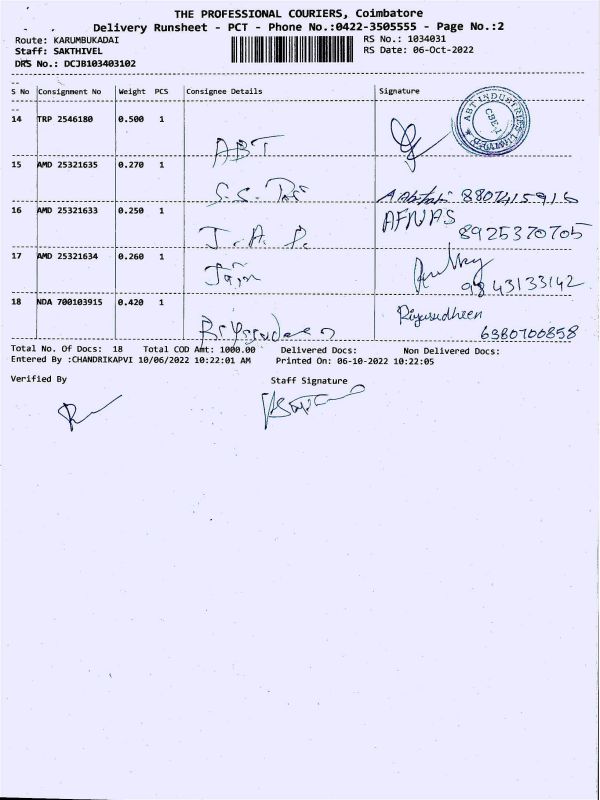 THE PROFESSIONAL COURIERS, Coimbatore
Delivery Runsheet - PCT - Phone No.:0422-3505555 - Page No.:2
Route: KARUMBUKADAI RS No.: 1034031
Staff: SAKTHIVEL RS Date: 06-Oct-2022
DRS No.: DCJB103403102
S No Consignment No Weight PCS Consignee Details Signature
ABT INDUSTRIES LIMITED CBE-1
14 TRP 2546180 0.500 1
ABT
15 AMD 25321635 0.270 1
S.S. 8807415916
16 AMD 25321633 0.250 1 AFNAS
J.A. 8925370705
17 AMD 25321634 0.260 1
Jain 9843133142
18 NDA 700103915 0.420 1 Riyasudheen
6380700858
Total No. Of Docs: 18 Total COD Amt: 1000.00 Delivered Docs: Non Delivered Docs:
Entered By :CHANDRIKAPVI 10/06/2022 10:22:01 AM Printed On: 06-10-2022 10:22:05
Verified By Staff Signature